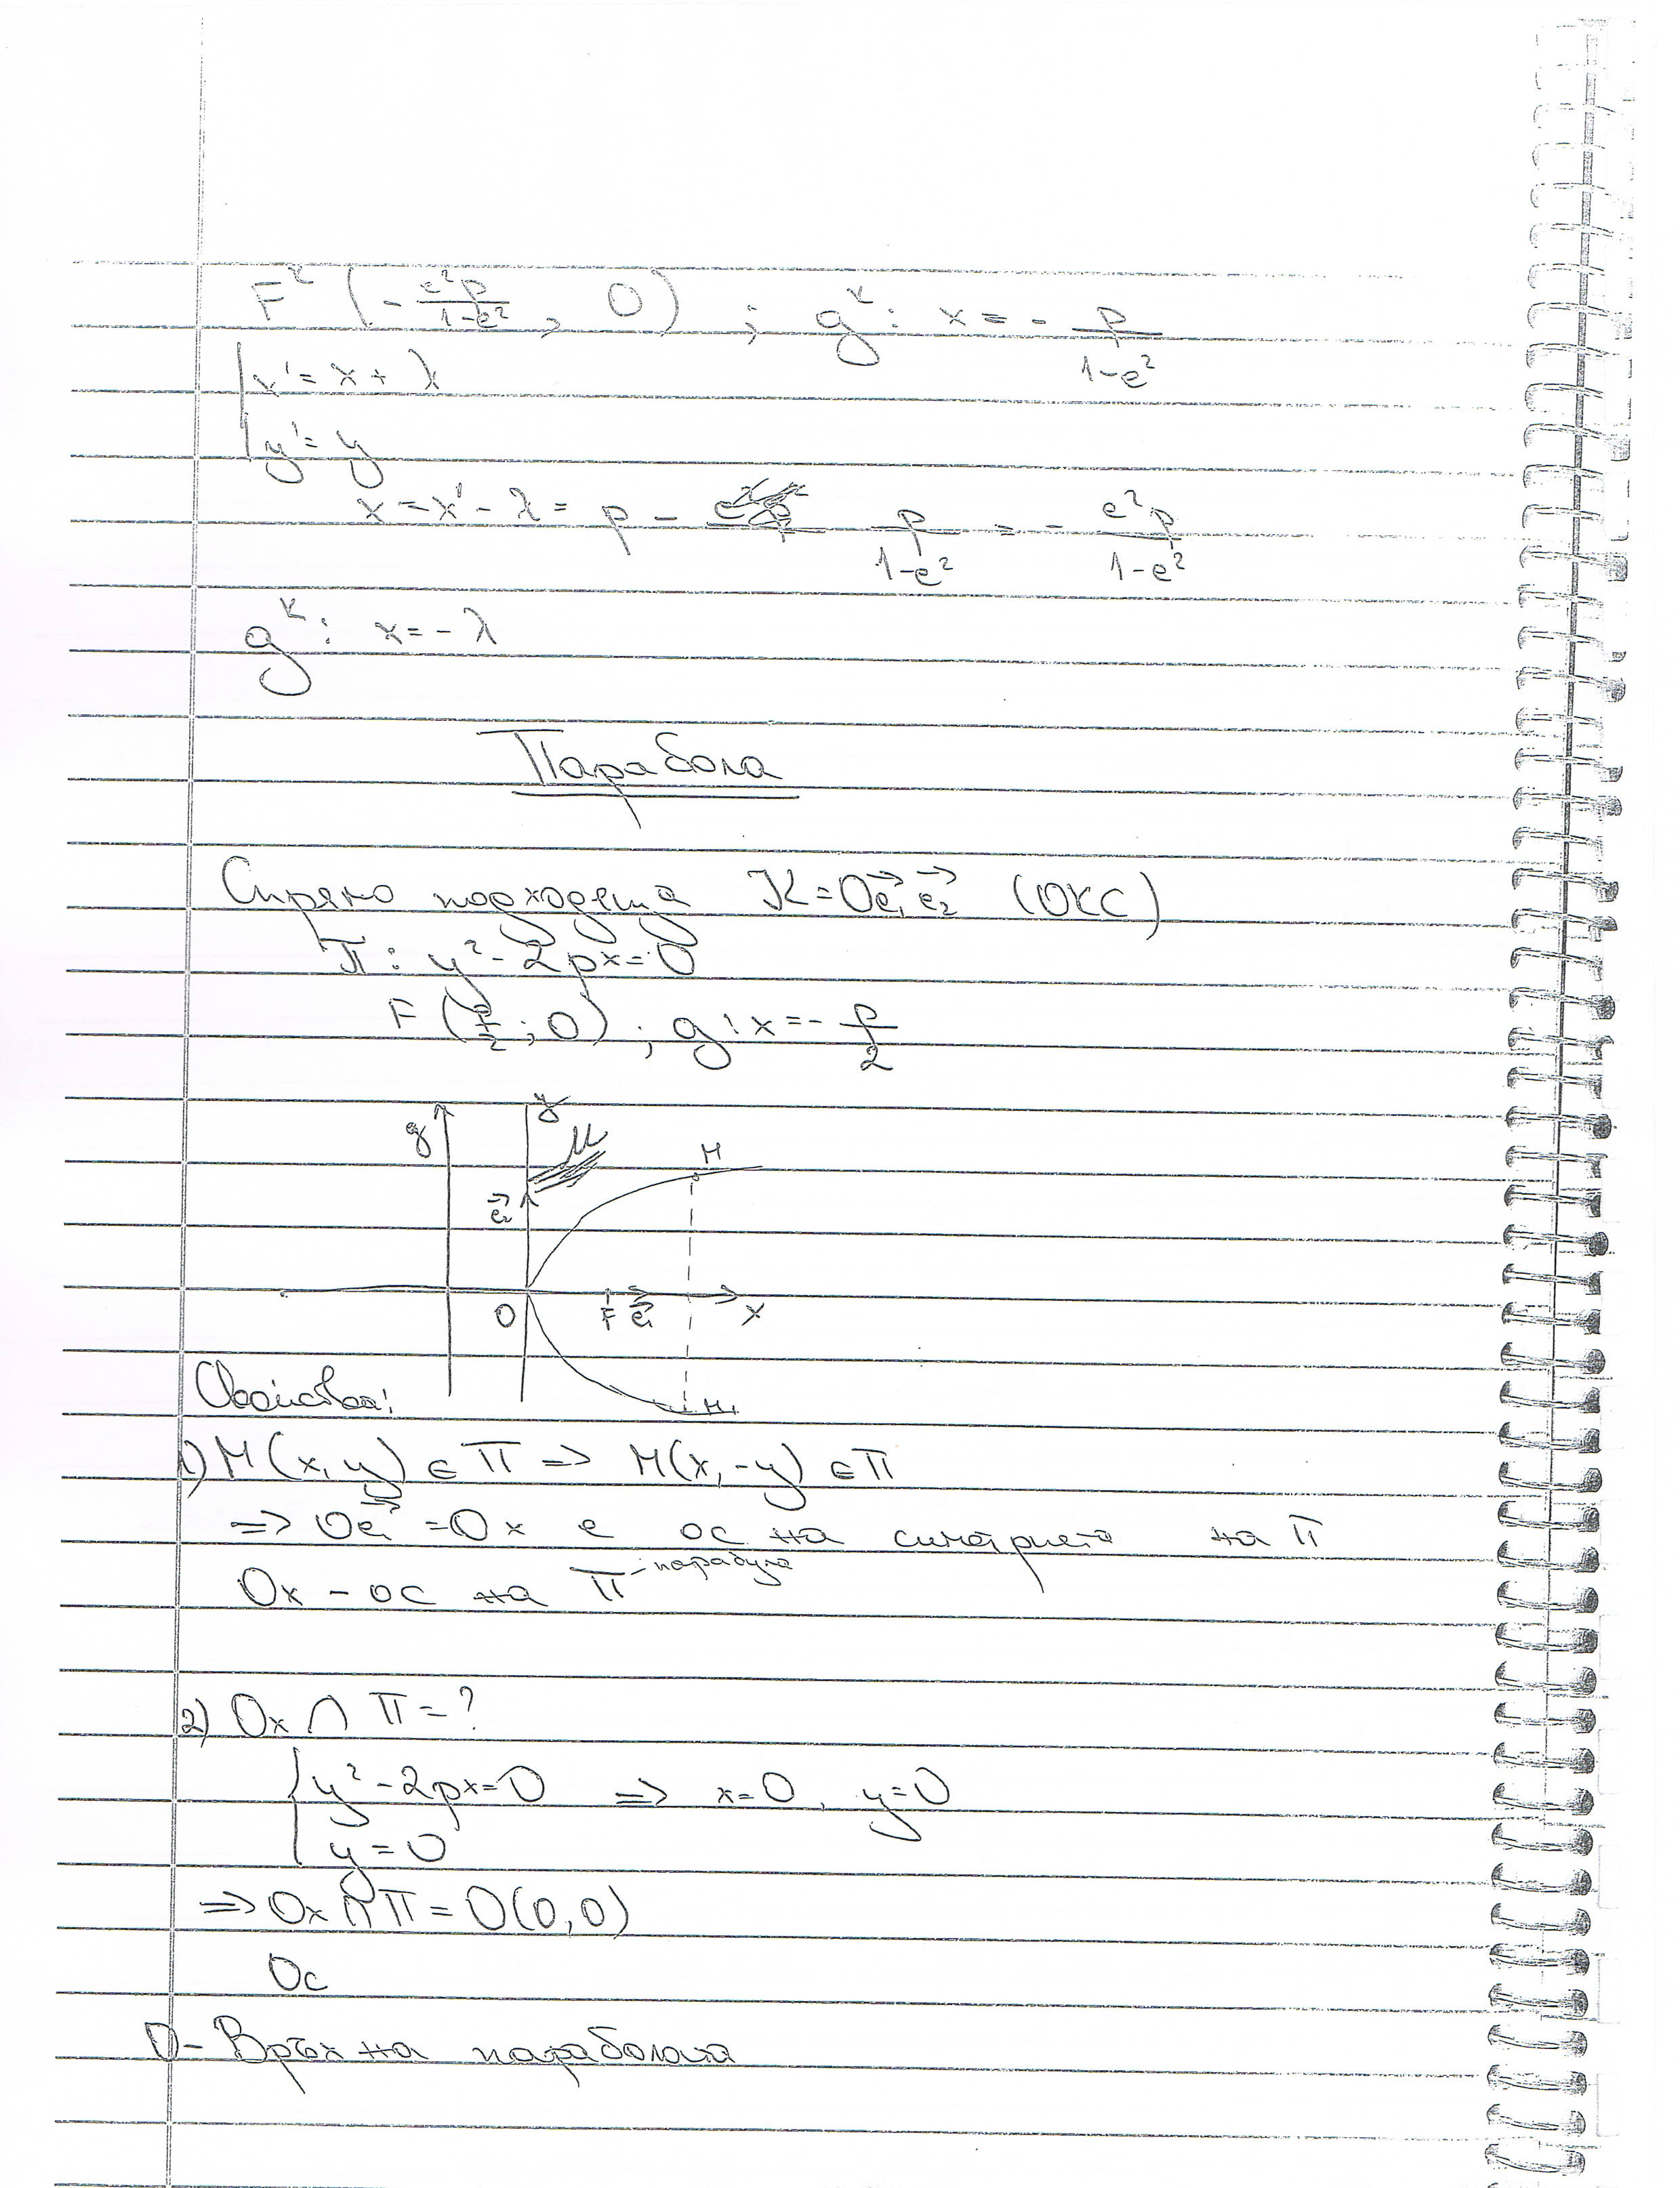 F^K (- e²p/(1-e²), 0) ; g^K: x = - p/(1-e²)
x' = x + λ
y' = y
x = x' - λ = p - p/(1-e²) = - e²p/(1-e²)
g^K: x = - λ
Парабола
Спрямо подходяща K = Oe₁→e₂→ (ОКС)
π: y² - 2px = 0
F (p/2; 0) ; g: x = - p/2
g y M
M
e₂→
O F e₁→ x
Свойства:
M₁
1) M(x, y) ∈ π => M(x, -y) ∈ π
=> Oe₁→ = Ox е ос на симетрията на π
Ox - ос на π - парабула
2) Ox ∩ π = ?
y² - 2px = 0 => x = 0, y = 0
y = 0
=> Ox ∩ π = O(0,0)
Ос
O - Връх на параболата